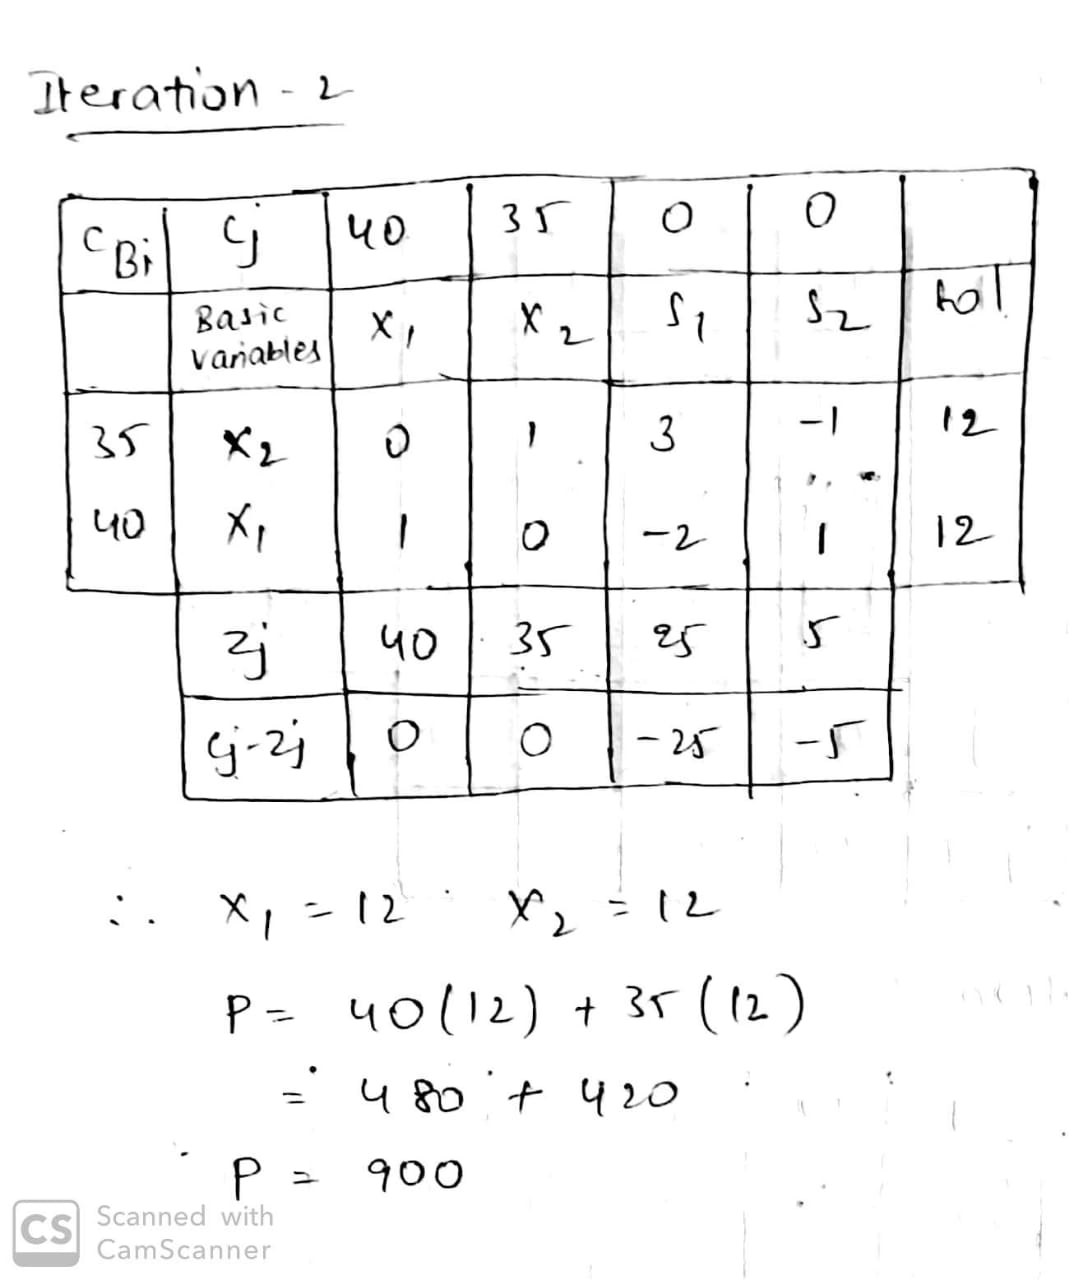 Iteration - 2
CBi Cj 40 35 0 0
Basic variables X1 X2 S1 S2 sol
35 X2 0 1 3 -1 12
40 X1 1 0 -2 1 12
Zj 40 35 25 5
Cj-Zj 0 0 -25 -5
∴ X1 = 12 X2 = 12
P = 40(12) + 35(12)
= 480 + 420
P = 900
CS Scanned with
CamScanner